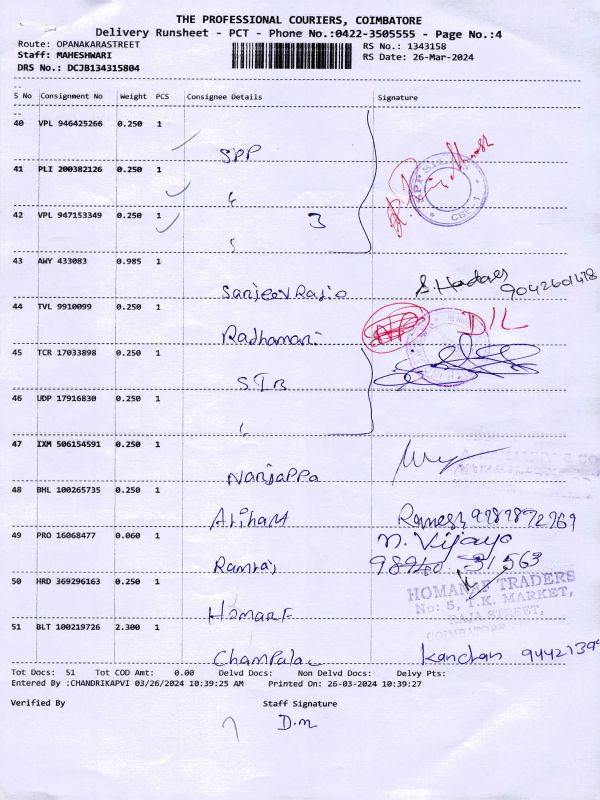 THE PROFESSIONAL COURIERS, COIMBATORE
Delivery Runsheet - PCT - Phone No.:0422-3505555 - Page No.:4
Route: OPANAKARASTREET RS No.: 1343158
Staff: MAHESHWARI RS Date: 26-Mar-2024
DRS No.: DCJB134315804
S No Consignment No Weight PCS Consignee Details Signature
40 VPL 946425266 0.250 1
SPP
41 PLI 200382126 0.250 1
42 VPL 947153349 0.250 1
3
43 AWY 433083 0.985 1
Sanjeev Rajio 9042601418
44 TVL 9910099 0.250 1
Radhamani DIL
45 TCR 17033898 0.250 1
STB
46 UDP 17916830 0.250 1
47 IXM 506154591 0.250 1
Nanjappa
48 BHL 100265735 0.250 1
Arihant Ramesh
49 PRO 16068477 0.060 1
n. Vijaya
Ramraj 98940 31563
50 HRD 369296163 0.250 1
HOMANAF TRADERS
No: 5, T.K. MARKET,
RAJA STREET,
Homan F
51 BLT 100219726 2.300 1
Champalal Kanchan
Tot Docs: 51 Tot COD Amt: 0.00 Delvd Docs: Non Delvd Docs: Delvy Pts:
Entered By :CHANDRIKAPVI 03/26/2024 10:39:25 AM Printed On: 26-03-2024 10:39:27
Verified By Staff Signature
D.M